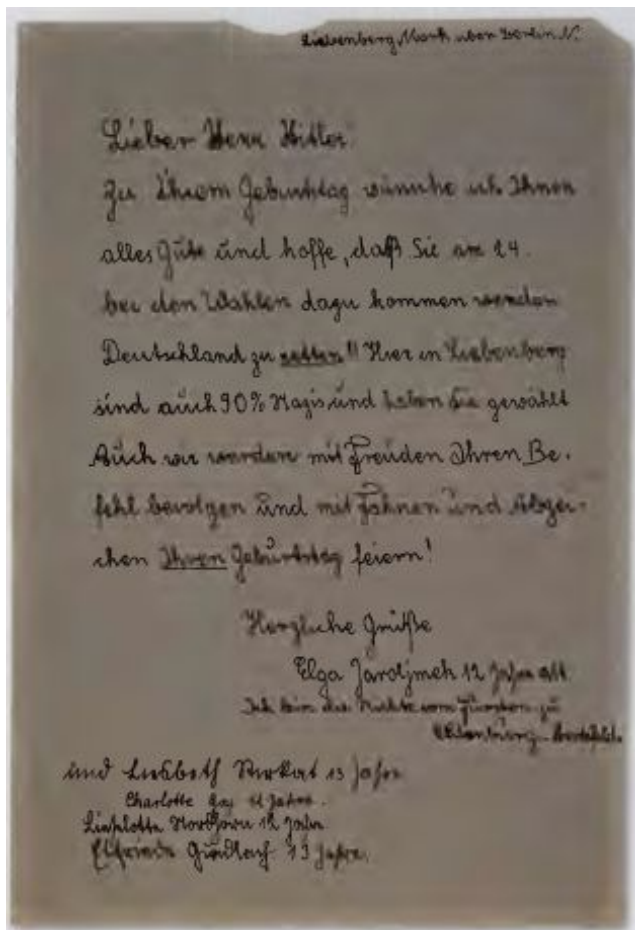 Liebenberg Mark über Berlin N.
Lieber Herr Hitler
Zu Ihrem Geburtstag wünsche ich Ihnen
alles Gute und hoffe, daß Sie am 24.
bei den Wahlen dazu kommen werden
Deutschland zu retten!! Hier in Liebenberg
sind auch 90% Nazis und haben Sie gewählt
Auch wir werden mit Freuden Ihren Be-
fehl bevolgen und mit Fahnen und Abzei-
chen Ihren Geburtstag feiern!
Herzliche Grüße
Elga 12 Jahre alt.
Ich bin die Nichte vom Fürsten zu
Eulenburg-Hertefeld.
und Liesbeth 13 Jahre
Charlotte 12 Jahre.
Lieselotte 12 Jahre
Elfriede Gundlach 13 Jahre.